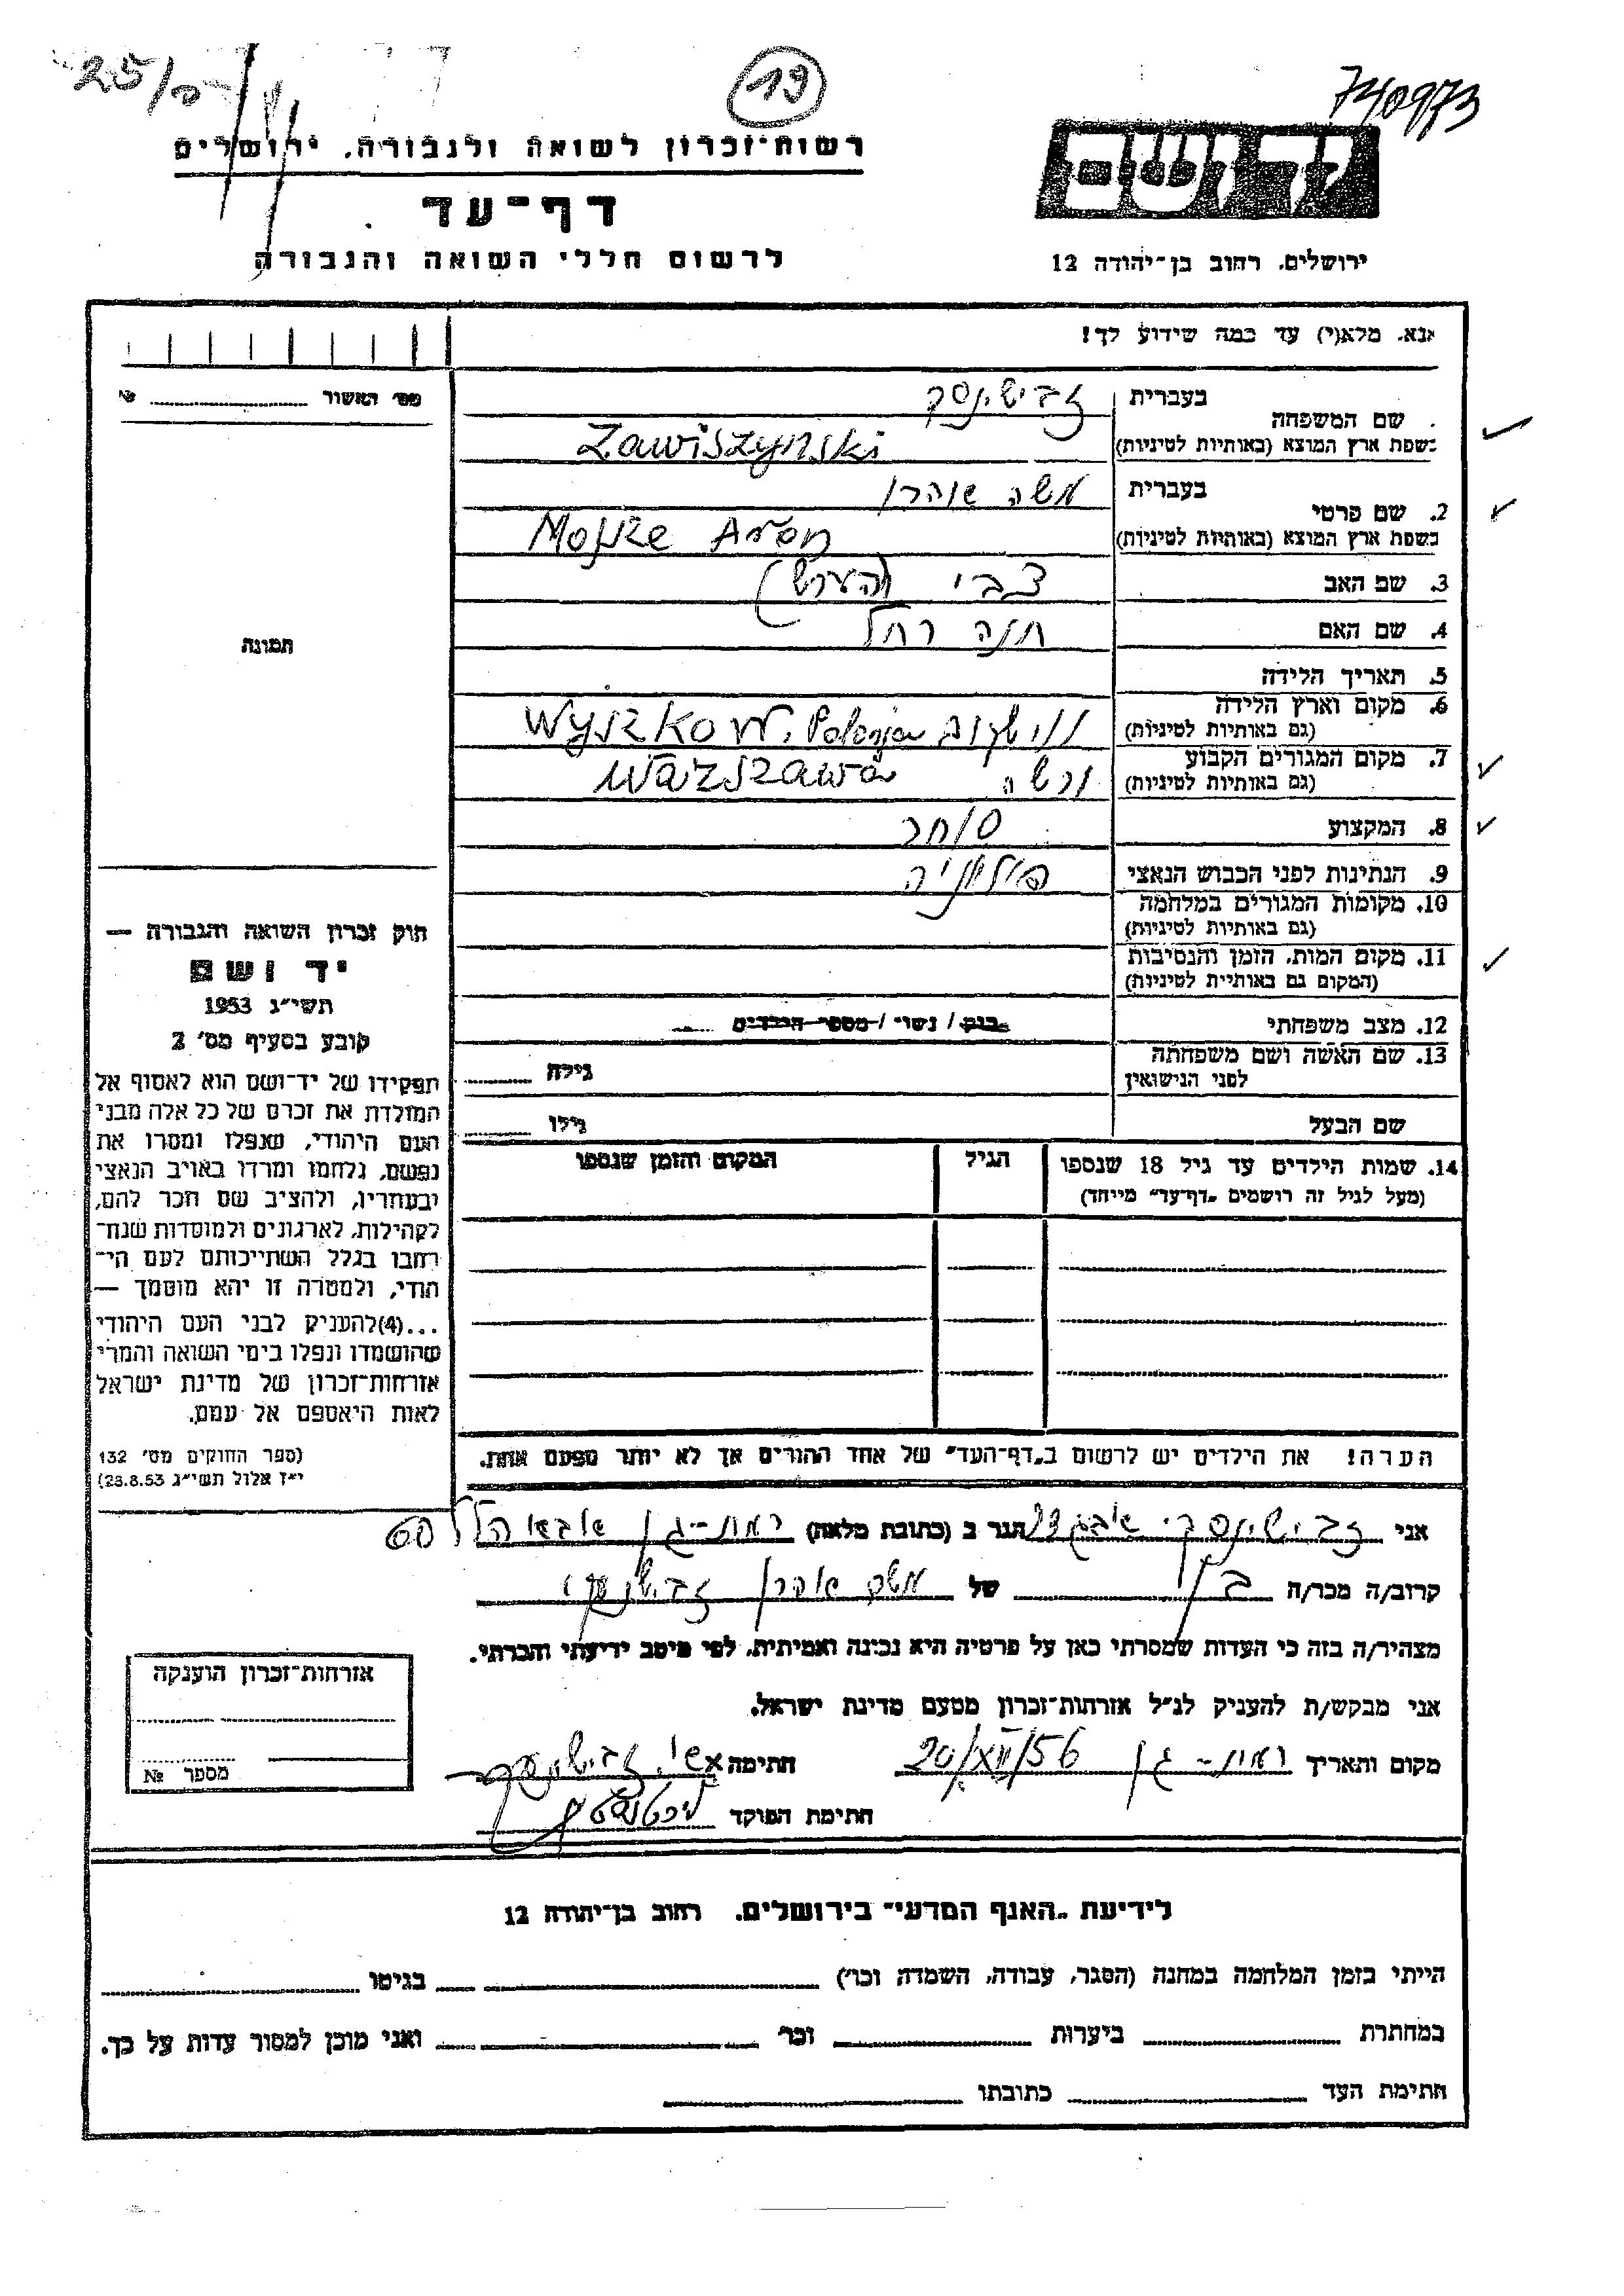 25/
19
740973
רשות־זכרון לשואה ולגבורה. ירושלים
דף־עד
לרשום חללי השואה והגבורה
יד ושם
ירושלים. רחוב בן־יהודה 12
אנא. מלא(י) עד כמה שידוע לך!
מס׳ האשור №
שם המשפחה
בעברית זבישינסקי
בשפת ארץ המוצא (באותיות לטיניות) Zawiszyński
2. שם פרטי
בעברית משה אהרן
בשפת ארץ המוצא (באותיות לטיניות) Mojże Aron
3. שם האב צבי (הערש)
4. שם האם חנה רחל
5. תאריך הלידה
6. מקום וארץ הלידה
(גם באותיות לטיניות) ווישקוב Wyszkow. Polonja
7. מקום המגורים הקבוע
(גם באותיות לטיניות) ורשה Warszawa
8. המקצוע סוחר
9. הנתינות לפני הכבוש הנאצי פולוניה
10. מקומות המגורים במלחמה
(גם באותיות לטיניות)
11. מקום המות. הזמן והנסיבות
(המקום גם באותיות לטיניות)
12. מצב משפחתי רווק / נשוי / מספר הילדים
13. שם האשה ושם משפחתה
לפני הנישואין
גילה
שם הבעל
גילו
14. שמות הילדים עד גיל 18 שנספו
(מעל לגיל זה רושמים „דף־עד״ מייחד)
הגיל
המקום והזמן שנספו
הערה! את הילדים יש לרשום ב„דף־העד״ של אחד ההורים אך לא יותר מפעם אחת.
תמונה
חוק זכרון השואה והגבורה —
יד ושם
תשי״ג 1953
קובע בסעיף מס׳ 2
תפקידו של יד־ושם הוא לאסוף אל
המולדת את זכרם של כל אלה מבני
העם היהודי, שנפלו ומסרו את
נפשם, נלחמו ומרדו באויב הנאצי
ובעוזריו, ולהציב שם וזכר להם,
לקהילות, לארגונים ולמוסדות שנח־
רבו בגלל השתייכותם לעם הי־
הודי, ולמטרה זו יהא מוסמך —
...(4) להעניק לבני העם היהודי
שהושמדו ונפלו בימי השואה והמרי
אזרחות־זכרון של מדינת ישראל
לאות היאספם אל עמם.
(ספר החוקים מס׳ 132
י״ז אלול תשי״ג 28.8.53)
אני זבישינסקי הגר ב (כתובת מלאה) רמת-גן אבא הלל 60
קרוב/ה מכר/ה בן של משה אהרן זבישינסקי
מצהיר/ה בזה כי העדות שמסרתי כאן על פרטיה היא נכונה ואמיתית. לפי מיטב ידיעתי והכרתי.
אני מבקש/ת להעניק לנ״ל אזרחות־זכרון מטעם מדינת ישראל.
מקום ותאריך רמת-גן 20/XII/56 חתימה זבישינסקי
חתימת הפוקד
אזרחות־זכרון הוענקה
מספר №
לידיעת „האגף המדעי״ בירושלים. רחוב בן־יהודה 12
הייתי בזמן המלחמה במחנה (הסגר, עבודה, השמדה וכו׳) בגיטו
במחתרת ביערות וכו׳ ואני מוכן למסור עדות על כך.
חתימת העד כתובתו